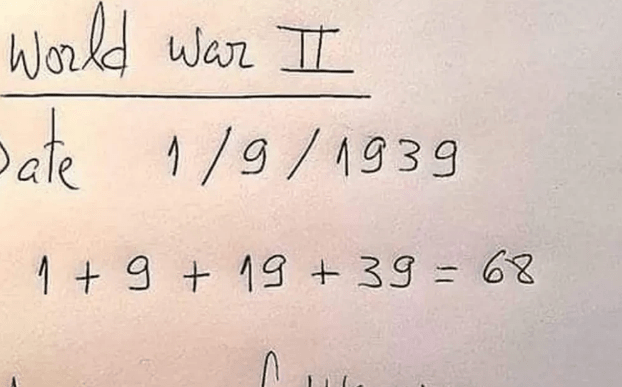 World War II
Date 1/9/1939
1 + 9 + 19 + 39 = 68